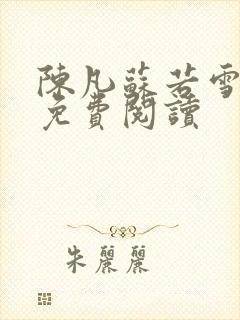 陳凡蘇若雪
免費閱讀
朱麗麗